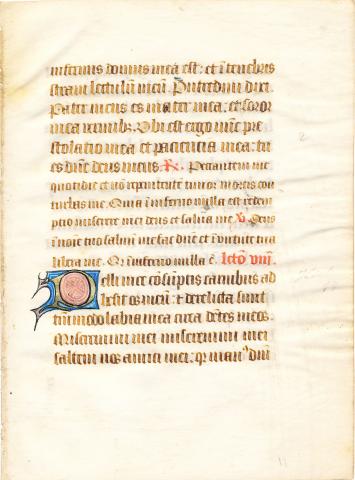 infernus domus mea est: et ī tenebris
stravi lectulum meū. Putredini dixi
Pater meus es mater mea: et soror
mea vermibꝫ. Ubi est ergo nūc pre
stolatio mea et paciencia mea: tu
es dñe deus meus. R. Peccantem me
quotidie et nō repenitentē timor mortis con
turbat me. Quia ī inferno nulla est redem
ptio miserere mei deus et salva me. V. Deus
ī noīe tuo salvū me fac dñe et ī virtute tua
libera me. Qr ī inferno nulla ē. lctō viii.
Pelli mee cōsūptis carnibus ad
hesit os meū: et derelicta sunt
tm̄modo labia mea circa dētes meos.
Miseremini mei miseremini mei
saltem vos amici mei: qr man⁹ dñi